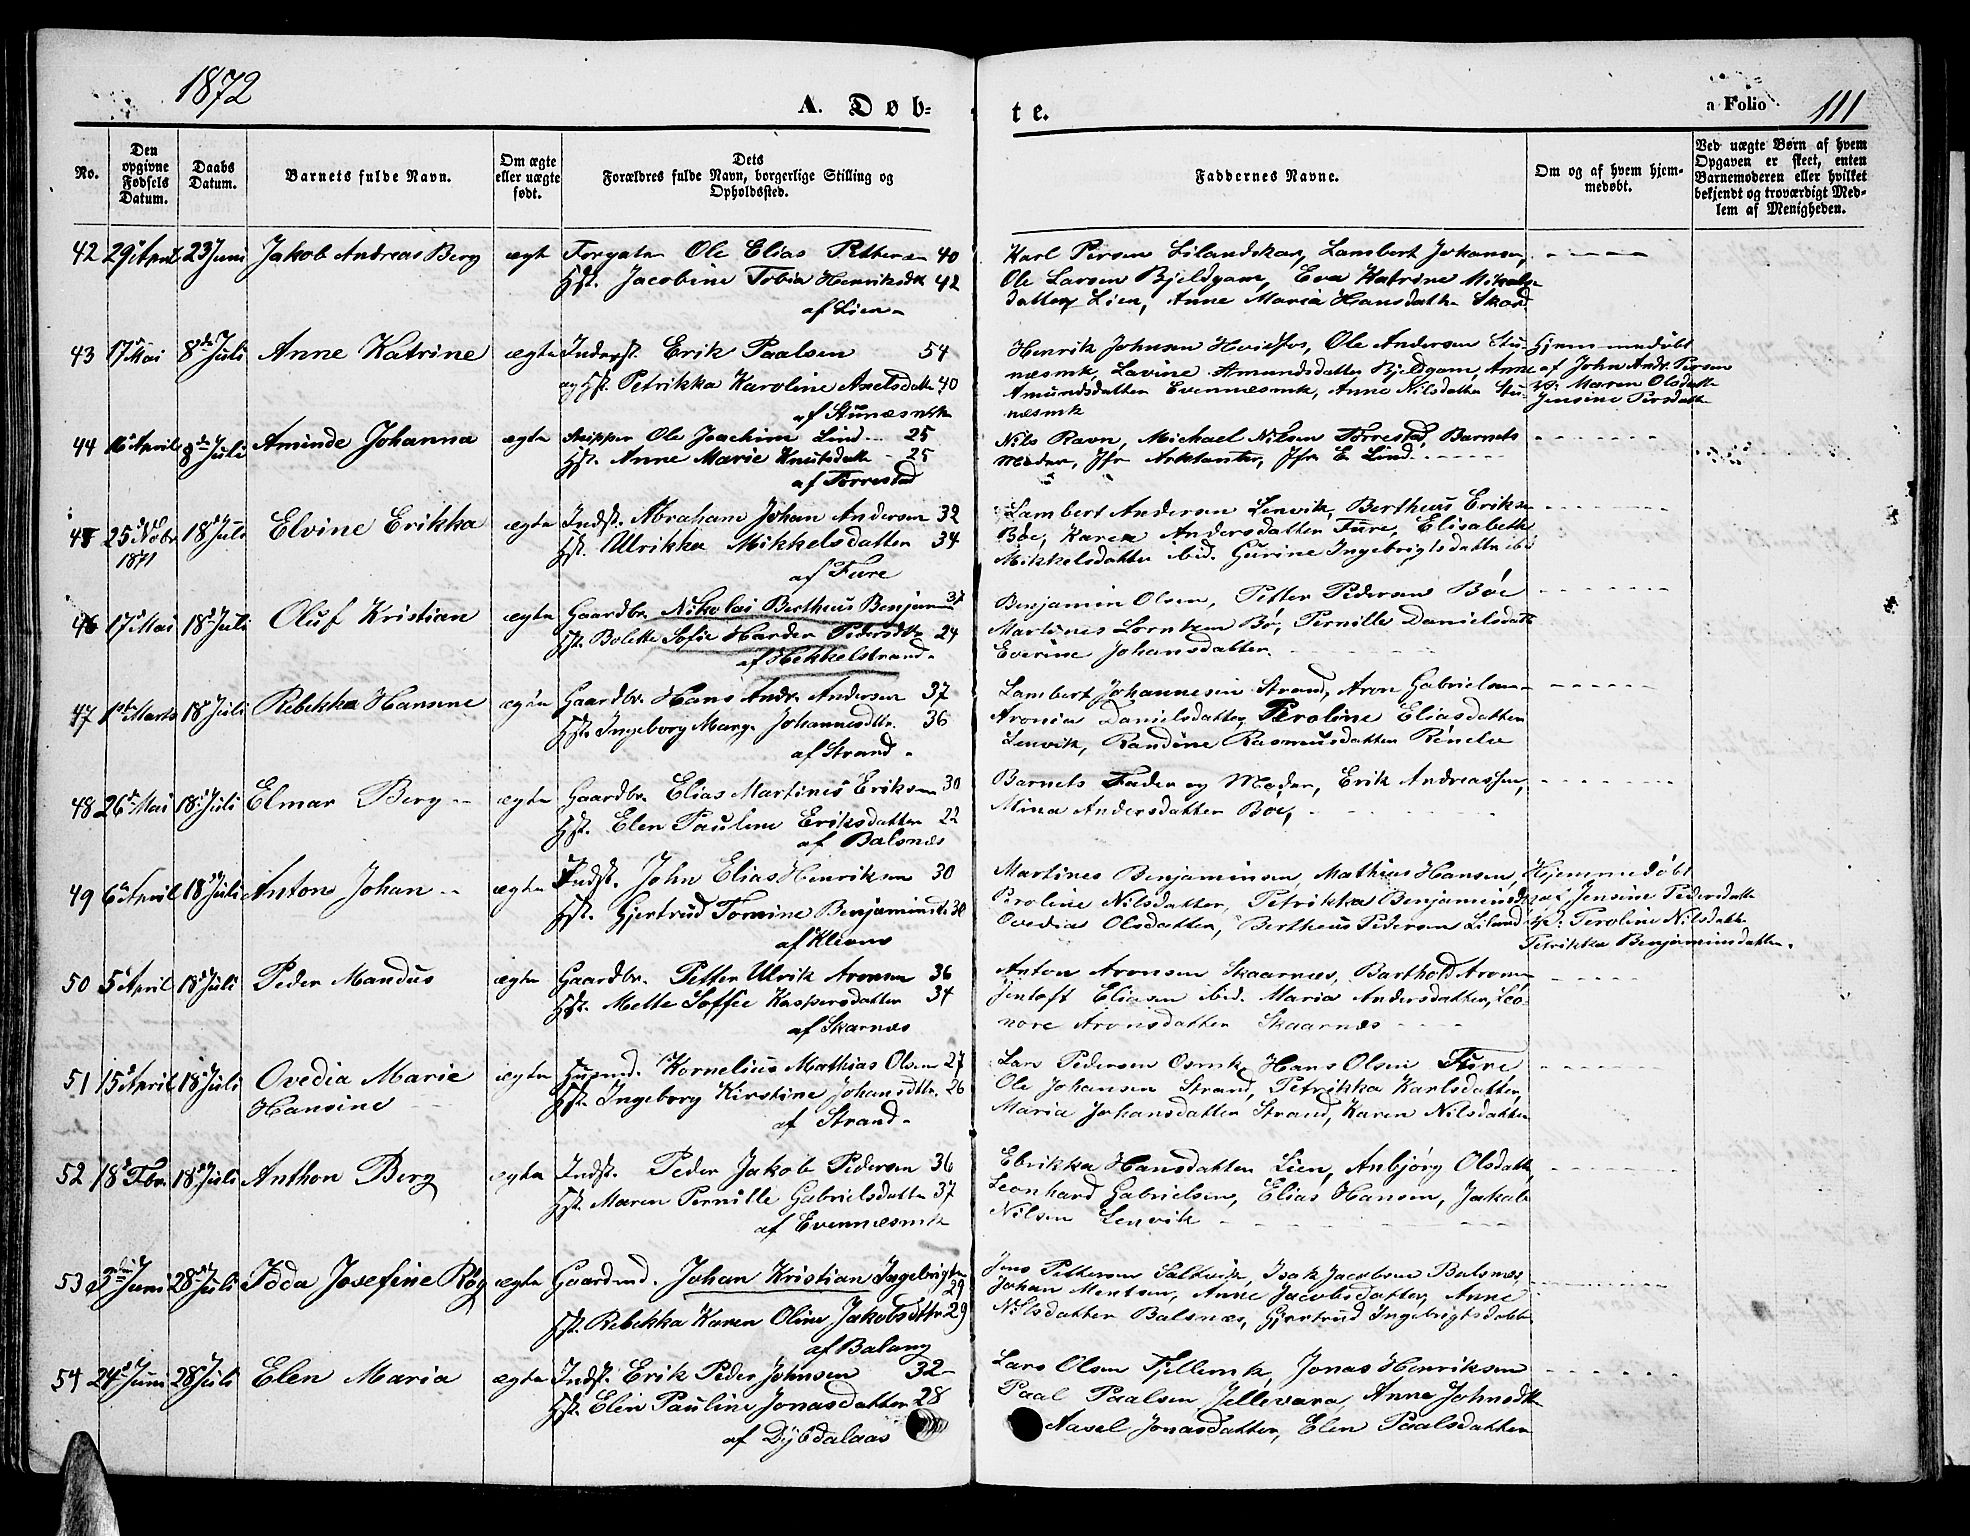 1872
A. Døb=
te.
a Folio 111
No.
Den opgivne Fødsels Datum.
Daabs Datum.
Barnets fulde Navn.
Om ægte eller uægte født.
Dets Forældres fulde Navn, borgerlige Stilling og Opholdssted.
Faddernes Navne.
Om og af hvem hjemmedøbt.
Ved uægte Børn af hvem Opgaven er skeet, enten Barnemoderen eller hvilket bekjendt og troværdigt Medlem af Menigheden.
42 29 April 23 Juni Jakob Andreas Berg ægt Forgatn Ole Elias Pettersen 40
Hst. Jacobine Tobia Henriksdt 42
af Lien
Karl Persen Lilandskar, Lambert Johansen,
Ole Larsen Bjeldgam, Eva Katrine Mikals-
datter Lien, Anne Maria Hansdatter Skard
43 17 Mai 8de Juli Anne Katrine ægte Inderst. Erik Paalsen 54
og Hst. Petrikka Karoline Axelsdatt 40
af Stunæsmk
Henrik Johnsen Hvidfos, Ole Andersen Stu-
næsmk, Lavine Amundsdatter Bjeldgam, Anne
Amundsdatter Evennæsmk, Anne Nilsdatter Stu-
næsmk
Hjemmedøbt
af John Andr. Persen
Maren Olsdatt
Jensine Persdatt
44 16 April 8de Juli Aminde Johanna ægte Skipper Ole Joachim Lind 25
Hst. Anne Marie Knutsdatt 25
af Forrestad
Nils Ravn, Michael Nilsen Forrestad, Barnets
Moder, Jfr Arktander, Jfr E. Lind
45 25 Nobr 1871 18 Juli Elvine Erikka ægte Indst. Abraham Johan Andersen 32
Hst. Ulrikka Mikkelsdatter 34
af Fure
Lambert Andersen Lenvik, Bertheus Eriksen
Bøe, Karen Andersdatter Fure, Elisabeth
Mikkelsdatter ibid. Gurine Ingebrigtsdatter ibid
46 17 Mai 18 Juli Oluf Kristian ægte Gaardbr. Nikolai Bertheus Benjamin 37
Hst. Bolette Sofie Harder Pedersdtr 24
af Hekkelstrand
Benjamin Olsen, Petter Pedersen Bøe
Martines Lorntzen Bø, Pernille Danielsdatt
Everine Johansdatter.
47 1ste Marts 18 Juli Rebekka Hansine ægte Gaardbr. Hans Andr. Andersen 37
Hst. Ingeborg Marg. Johannesdtr. 36
af Strand
Lambert Johannesen Strand, Aron Gabrielsen
Aronia Danielsdatter, Peroline Eliasdatter
Lenvik, Randine Rasmusdatter Renelv
48 26 Mai 18 Juli Elmar Berg ægte Gaardbr. Elias Martines Eriksen 30
Hst. Elen Pauline Eriksdatter 22
af Balsnæs
Barnets Fader og Moder, Erik Andreassen,
Mina Andersdatter Boe,
49 6 April 18 Juli Antons Johan ægte Indst. John Elias Henriksen 30
Hst. Gjertrud Tomine Benjamindt 38
af Klevns
Martines Benjaminsen, Mathias Hansen,
Peroline Nilsdatter, Petrikka Benjaminsdt
Ovedia Olsdatter, Bertheus Pedersen Liland
Hjemmedøbt
af Jensine Pedersdatt
Peroline Nilsdatt
Petrikka Benjaminsdatter.
50 5 April 18 Juli Peder Mandus ægte Gaardbr. Petter Ulrik Aronsen 36
Hst. Mette Soffie Kaspersdatter 34
af Skarnæs
Anton Aronsen Skaarnæs, Barthold Aronsen
Jentoft Eliasen ibid. Maria Andersdatter, Leo-
nore Aronsdatter Skaarnæs
51 15 April 18 Juli Ovedia Marie
Hansine
ægte Husmd. Kornelius Mathias Olsen 27
Hst. Ingeborg Kirstine Johansdtr. 26
af Strand
Lars Pedersen Osmk, Hans Olsen Fure
Ole Johansen Strand, Petrikka Karlsdatter,
Maria Johansdatter Strand, Karen Nilsdatter
52 18 Fbr. 18 Juli Anthon Berg ægte Indst. Peder Jakob Pedersen 36
Hst. Maren Pernille Gabrielsdatter 37
af Evennæsmk
Ebrikka Hansdatter Lien, Anbjørg Olsdatt,
Leonhard Gabrielsen, Elias Hansen, Jakob
Nilsen Lenvik
53 Juni 28 Juli Idda Josefine Røg ægte Gaardmd. Johan Kristian Ingebrigtsen 29
Hst. Rebekka Karen Oline Jakobsdtr 29
af Balang
Jens Pettersen Saltvik, Isak Jacobsen Balsnæs,
Johan Mentsen, Anne Jacobsdatter, Anne
Nilsdatter Balsnæs, Gjertrud Ingebrigtsdatter
54 24 Juni 28 Juli Elen Maria ægte Indst. Erik Peder Johnsen 32
Hst. Elen Pauline Jonasdatter 28
af Dybdalaas
Lars Olsen Fjellemk, Jonas Henriksen
Paal Paalsen Jellevara, Anne Johnsdt
Aasel Jonasdatter, Elen Paalsdatter